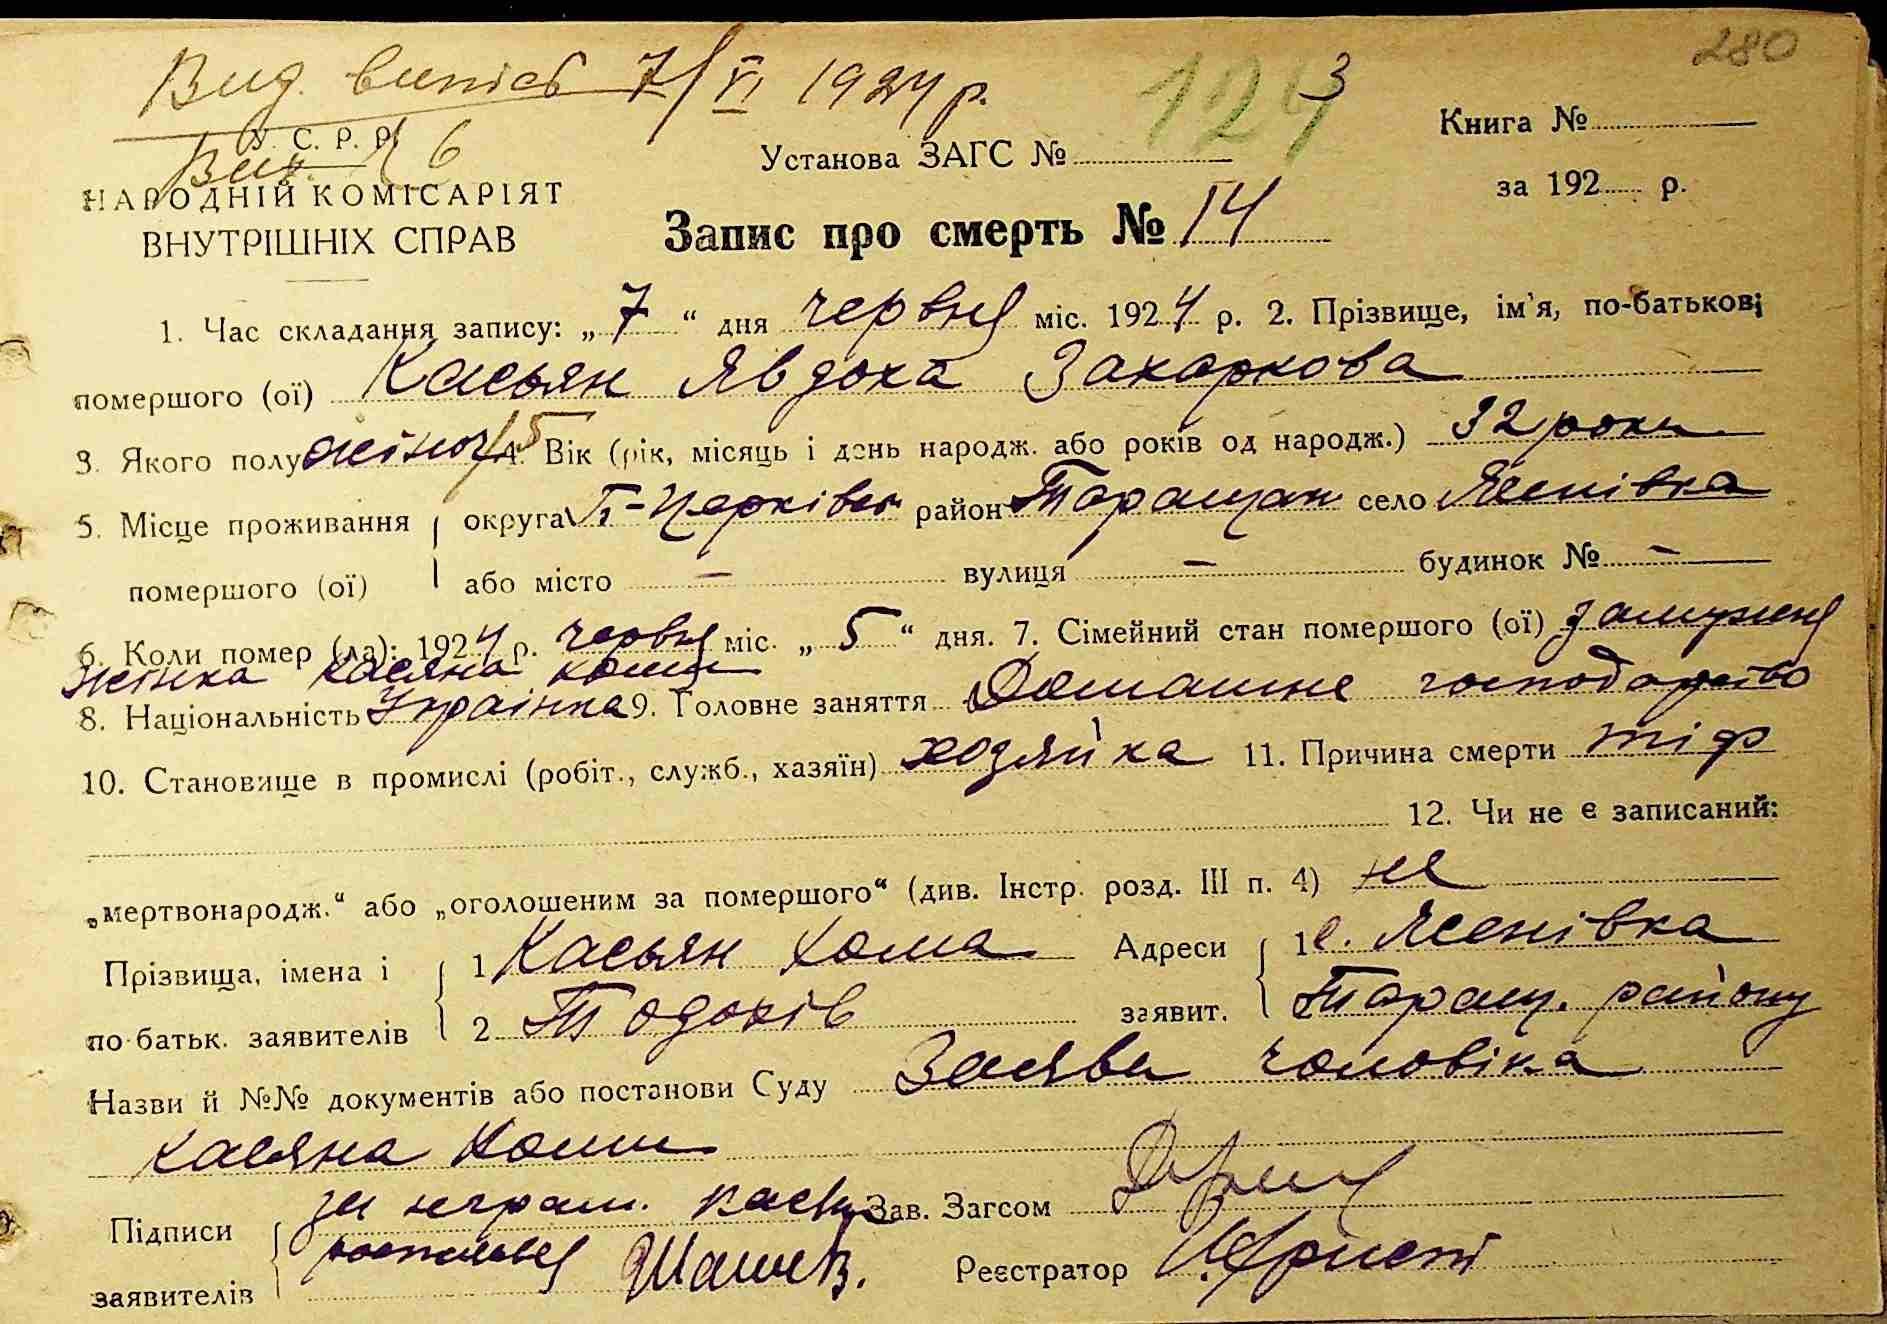 280
Вид. випись 7/VI 1924 р.
124 3
Книга №
У. С. Р. Р.
Вип. № 6
Установа ЗАГС №
за 192 р.
НАРОДНІЙ КОМІСАРІЯТ
ВНУТРІШНІХ СПРАВ
Запис про смерть № 14
1. Час складання запису: „ 7 “ дня червня міс. 1924 р. 2. Прізвище, ім'я, по-батькові
помершого (ої) Касьян Явдоха Захаркова
3. Якого полу жіноч 4. Вік (рік, місяць і день народж. або років од народж.) 32 роки
5. Місце проживання округа Б-Церківськ район Таращан село Ясенівка
помершого (ої) або місто — вулиця — будинок № —
6. Коли помер (ла): 1924 р. червня міс. „ 5 “ дня. 7. Сімейний стан помершого (ої) замужня
жінка Касяна Хоми
8. Національність Українка 9. Головне заняття Домашнє господарство
10. Становище в промислі (робіт., служб., хазяїн) хозяйка 11. Причина смерти тіф
12. Чи не є записаний:
„мертвонародж.“ або „оголошеним за помершого“ (див. Інстр. розд. III п. 4) не
Прізвища, імена і 1 Касьян Хома Адреси 1 с. Ясенівка
по батьк. заявителів 2 Тодохів заявит. 2 Таращ. району
Назви й №№ документів або постанови Суду Заява чоловіка
Касяна Хоми
Підписи за неграм. Зав. Загсом
заявителів Реєстратор